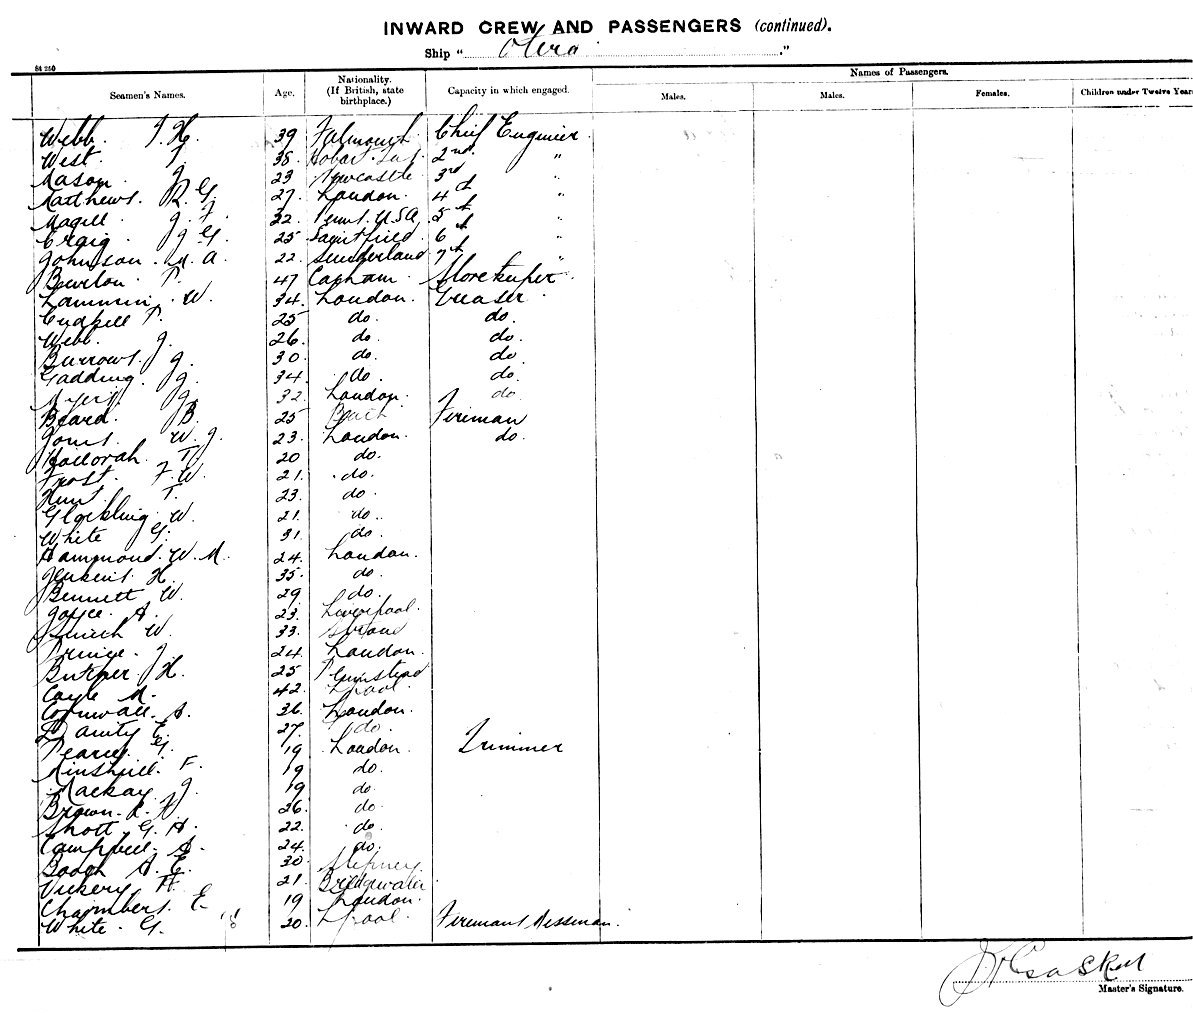 INWARD CREW AND PASSENGERS (continued).
Ship "                    ."
84 250
Seamen's Names. Age. Nationality. (If British, state birthplace.) Capacity in which engaged. Names of Passengers.
Males. Males. Females. Children under Twelve Years
Webb. J. H. 39 Falmouth. Chief Engineer
West. 38. Hobart. Tas. 2nd "
Mason. J. 23 Newcastle 3rd "
Matthews. R. G. 27. London. 4th "
Magill. J. F. 32. U.S.A. 5th "
Craig. J. G. 25. Saintfield. 6th "
Johnson. A. 22. Sunderland 7th "
Burton. P. 47 Storekeeper
W. 34. London. Greaser
Cudbill P. 25 do. do.
Webb. J. 26. do. do.
Burrows. J. 30. do. do
Gadding. J. 34. do. do.
Myers J. 32. London. do
Beard. B. 25 Fireman
Jones. W. J. 23. London. do.
Halloran T. 20 do.
Frost. F. W. 21. do.
Hunt T. 23. do.
Glockling. W. 21. do.
White G. 31. do.
Hammond. W. M. 24. London.
Jenkins. H. 35. do.
Bennett W. 29 do.
Joyce. A. 23. Liverpool.
Smith W. 33.
Prince. J. 24. London.
H. 25 Plumstead
Coyle M. 42. L'pool.
Cornwall. A. 36. London.
Dainty E. 27. do.
Pearce G. 19 London. Trimmer
Minshull. F. 19 do.
Mackay. J. 19 do.
Brown. R. H. 26. do.
Shott. G. H. 22. do.
Campbell. A. 24. do.
Booth A. E. 30. Stepney
Vickery H. 21. Bridgwater
Chambers. E. 19 London.
White. G. 20. L'pool. Firemans Messman.
Master's Signature.